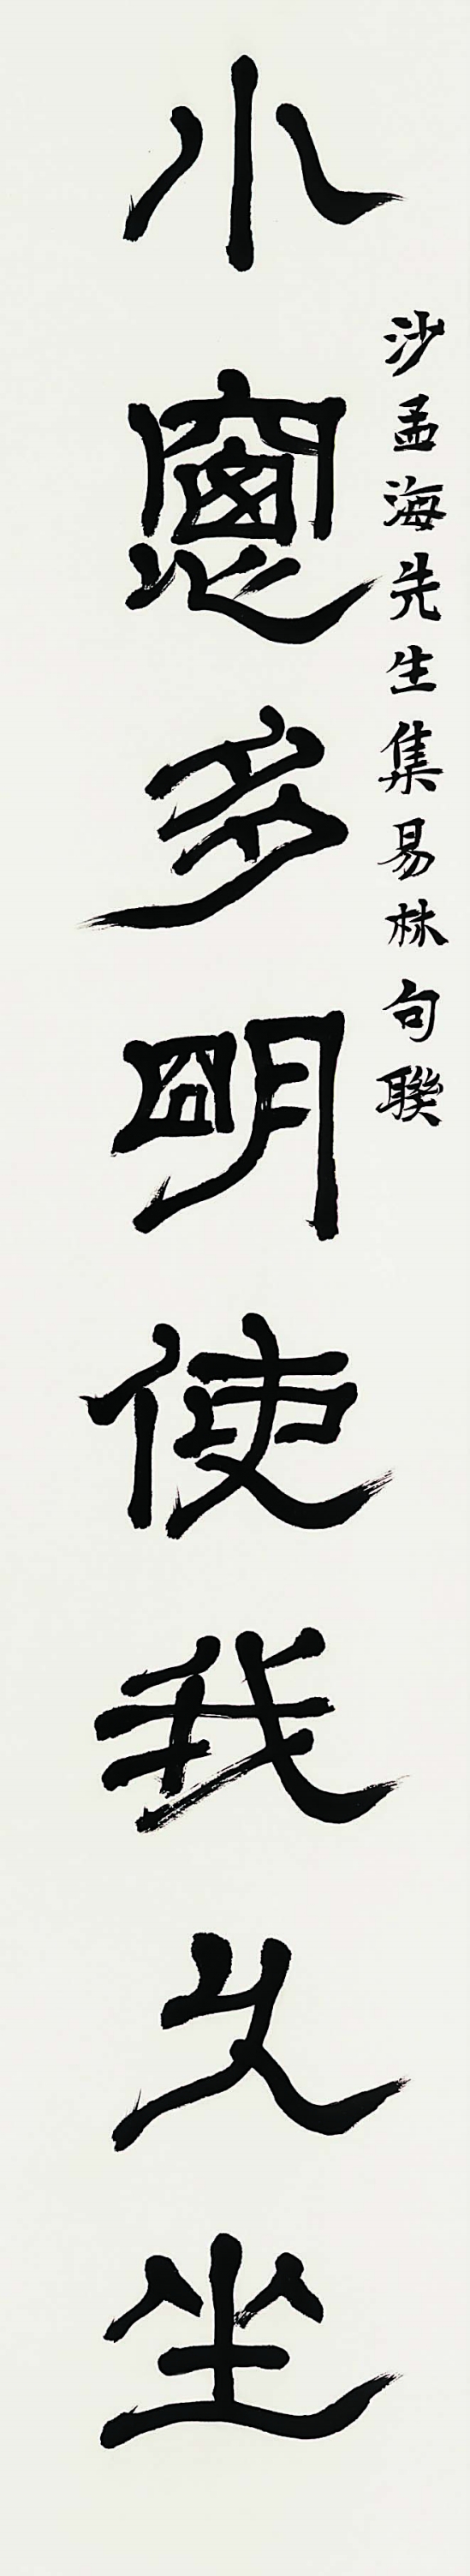 沙孟海先生集易林句聯
小窻多明使我久坐